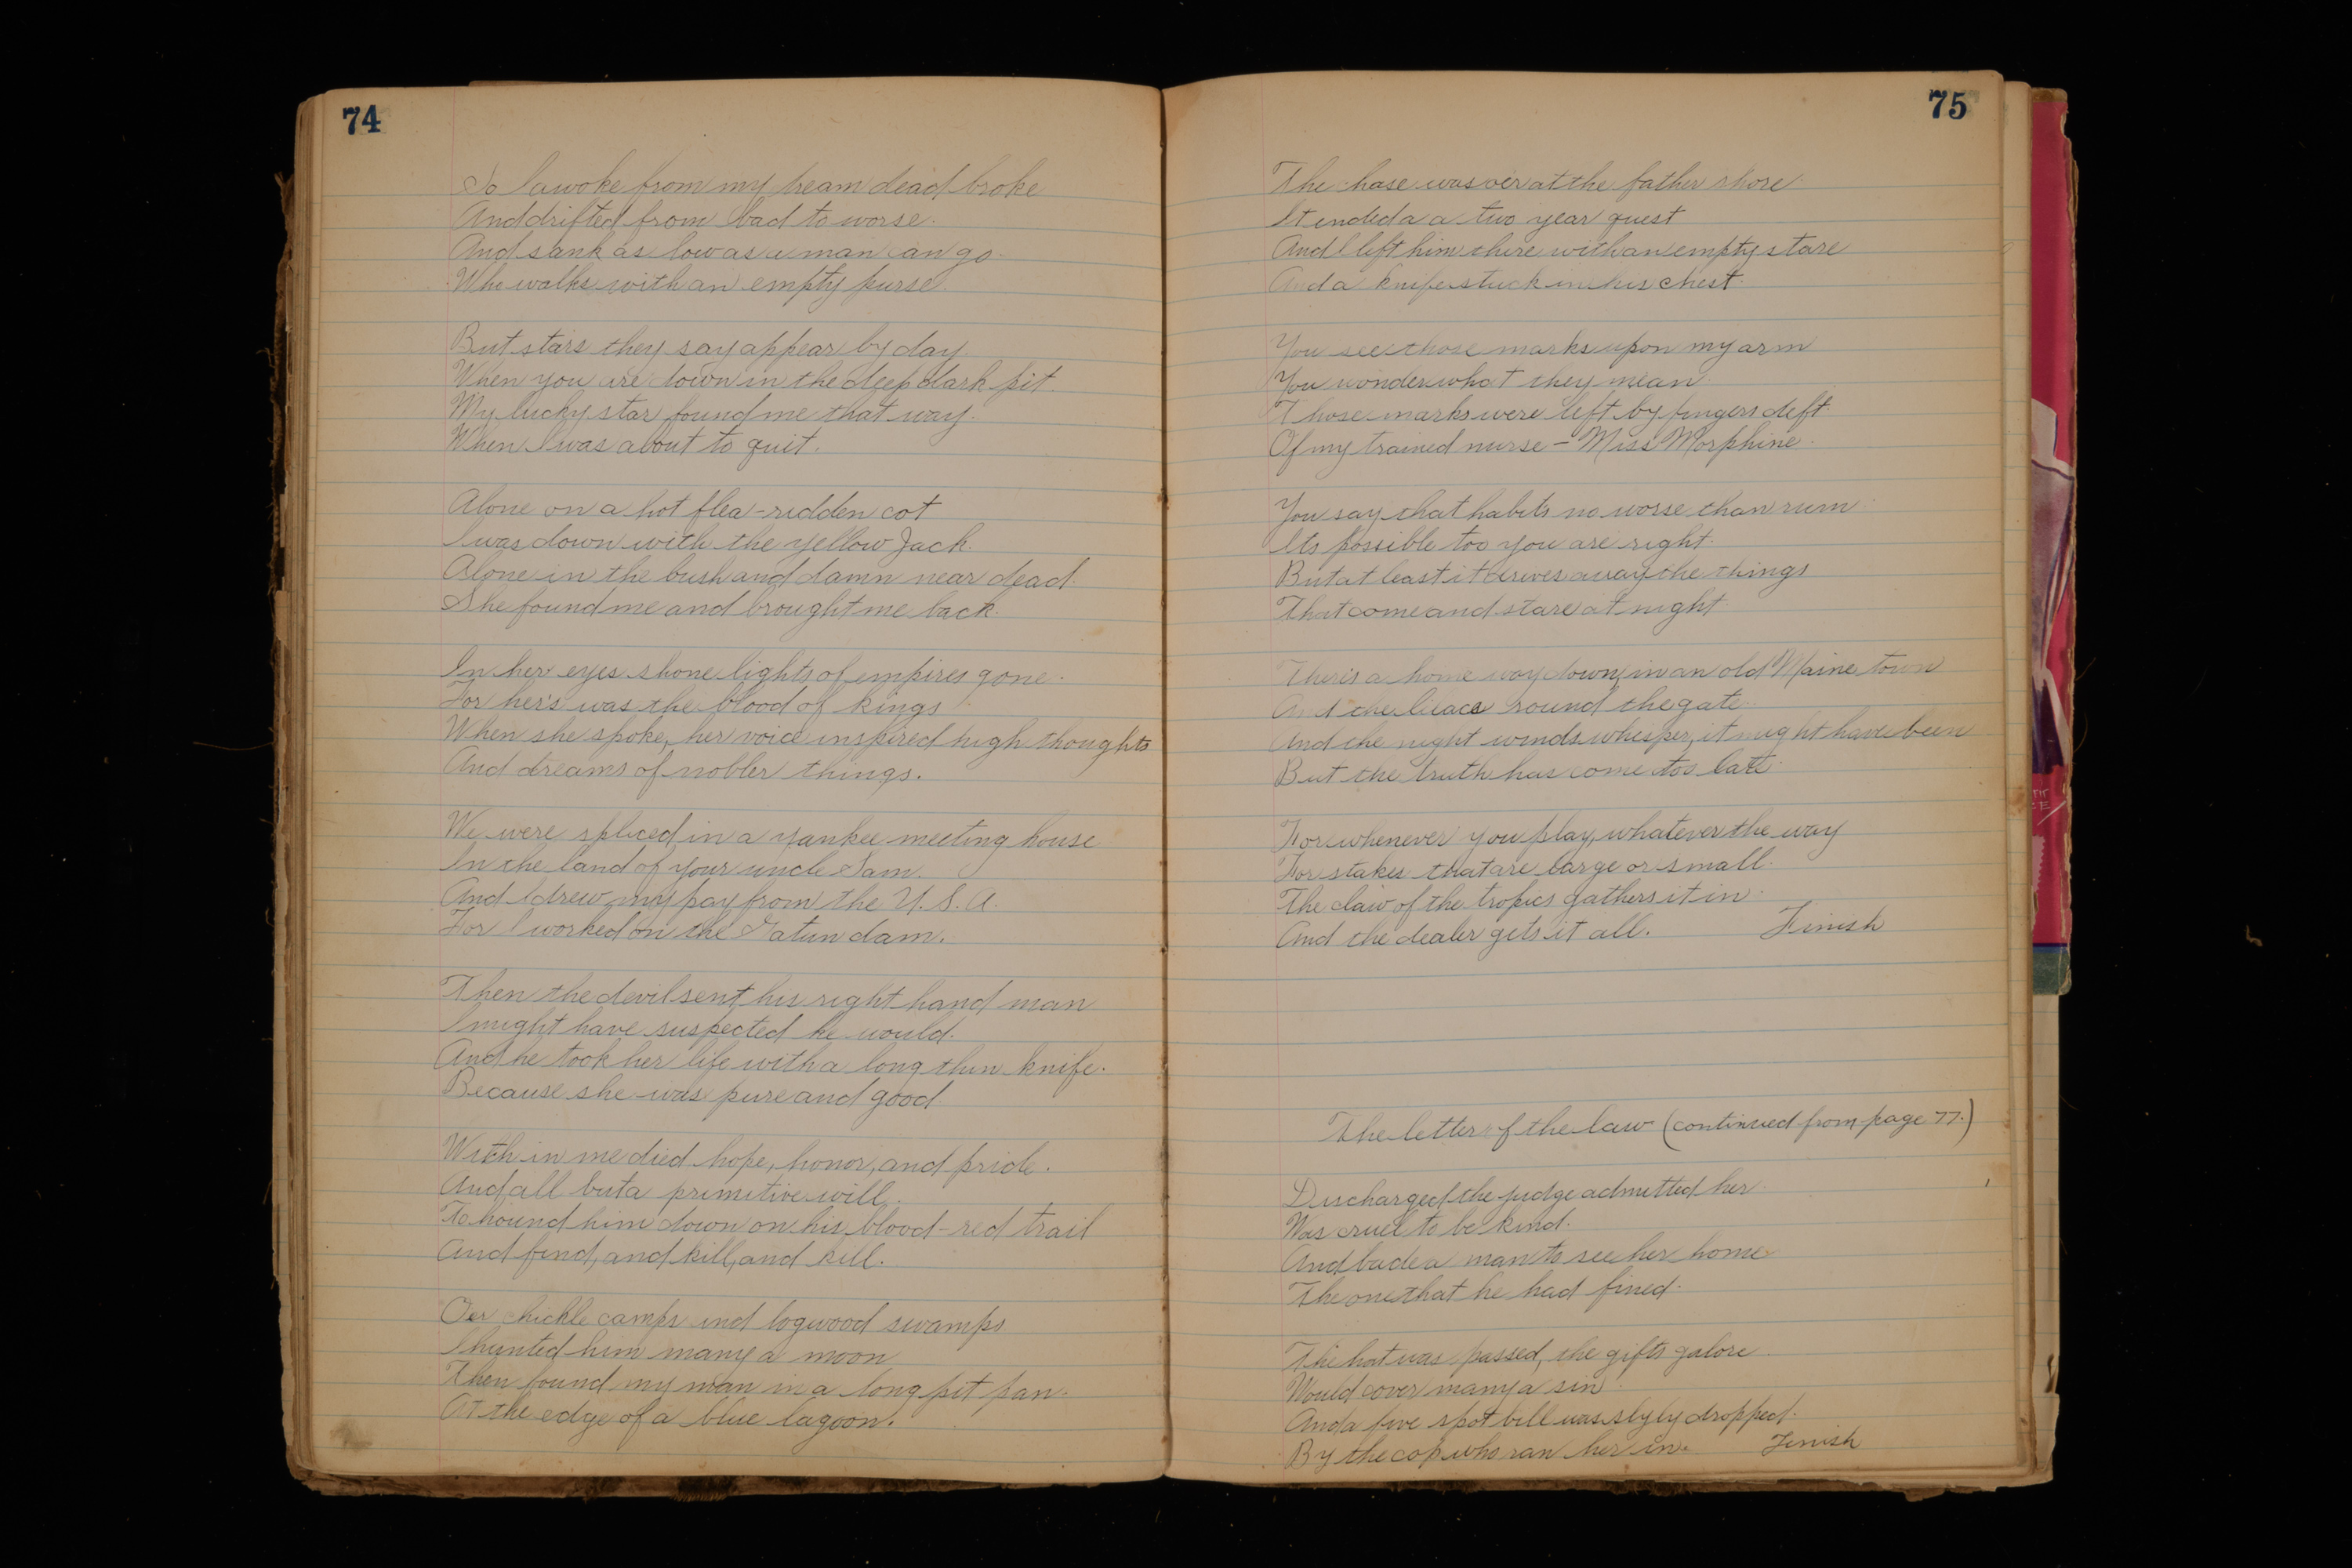 74
So I awoke from my dream dead broke
And drifted from bad to worse.
And sank as low as a man can go.
Who walks with an empty purse.
But stars they say appear by day.
When you are down in the deep dark pit
My lucky star found me that way.
When I was about to quit.
Alone on a hot flea-ridden cot
I was down with the yellow Jack.
Alone in the bush and damn near dead.
She found me and brought me back.
In her eyes shone lights of empires gone.
For her's was the blood of kings
When she spoke, her voice inspired high thoughts
And dreams of nobler things.
We were spliced in a yankee meeting house
In the land of your uncle Sam.
And I drew my pay from the U.S.A.
For I worked on the Gatun dam.
Then the devil sent his right hand man
I might have suspected he would.
And he took her life with a long thin knife.
Because she was pure and good
With in me died hope, honor, and pride.
And all but a primitive will.
To hound him down on his blood-red trail
And find, and kill, and kill.
Oer chickle camps and logwood swamps
I hunted him many a moon
Then found my man in a long pit pan.
At the edge of a blue lagoon.
75
The chase was oer at the father shore.
It ended a a two year quest
And I left him there with an empty stare
And a knife stuck in his chest.
You see those marks upon my arm
You wonder what they mean.
Those marks were left by fingers deft.
Of my trained nurse - Miss Morphine.
You say that habits no worse than rum
Its possible too you are right.
But at least it drives away the things
That come and stare at night.
There's a home way down, in an old Maine town
And the lilacs round the gate.
And the night winds whisper, it might have been
But the truth has come too late.
For whenever you play, whatever the way
For stakes that are large or small.
The claw of the tropics gathers it in.
And the dealer gets it all. Finish
The letter of the law (continued from page 77.)
Discharged the judge admitted her.
Was cruel to be kind.
And bade a man to see her home
The one that he had fined.
The hat was passed, the gifts galore.
Would cover many a sin.
And a five spot bill was slyly dropped.
By the cop who ran her in. Finish